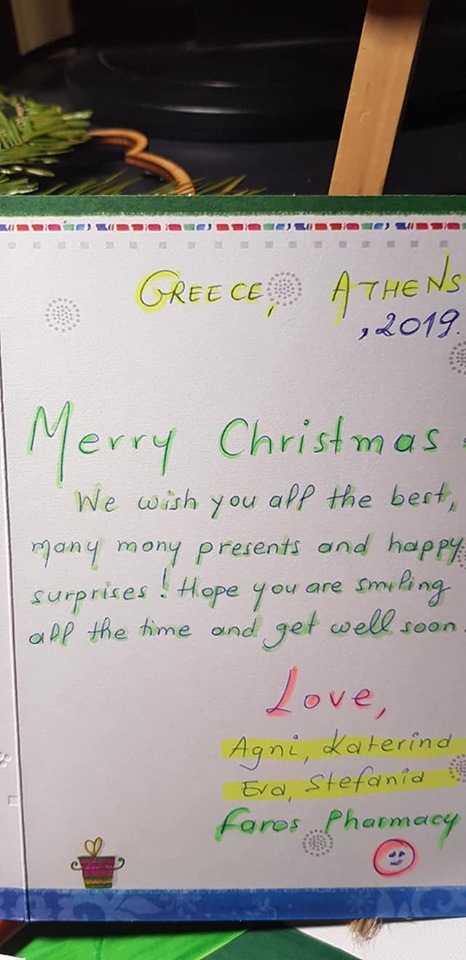 GREECE, ATHENS
,2019.
Merry Christmas
We wish you all the best,
many many presents and happy
surprises! Hope you are smiling
all the time and get well soon.
Love,
Agni, Katerina
Eva, Stefania
Faros Pharmacy